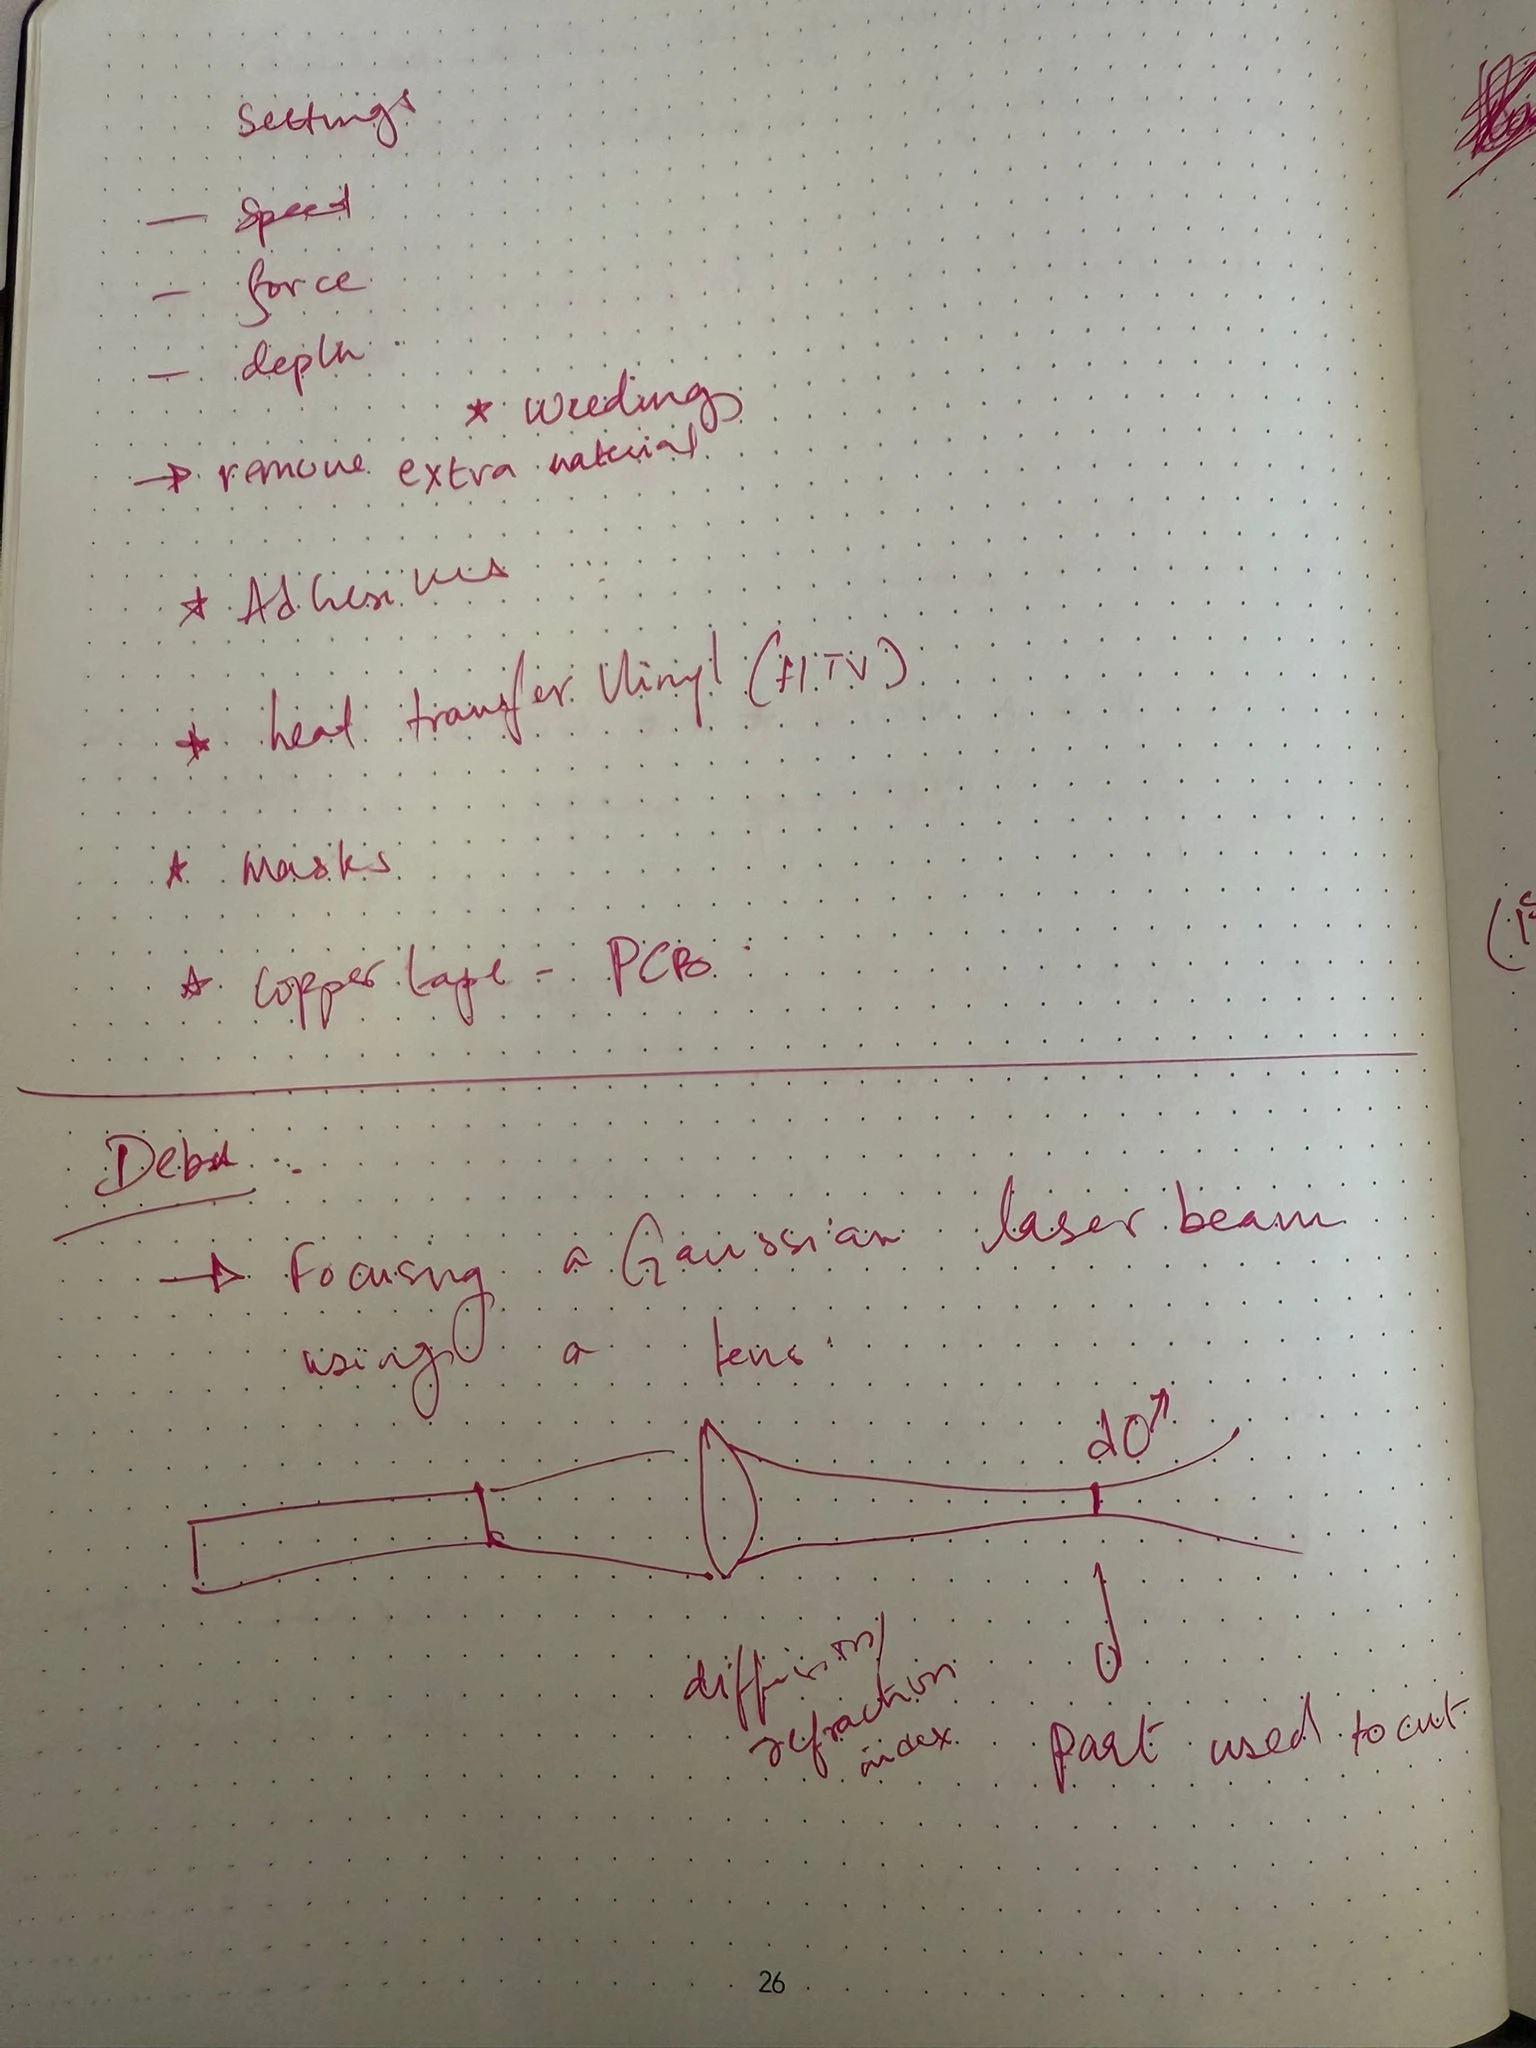 Settings
— speed
— force
— depth
* Weeding
→ remove extra material
* Adhesives
* heat transfer Vinyl (HTV)
* Masks
* Copper tape - PCBs
→ Focusing a Gaussian laser beam
using a lens
d0
refraction
index
Part used to cut
26